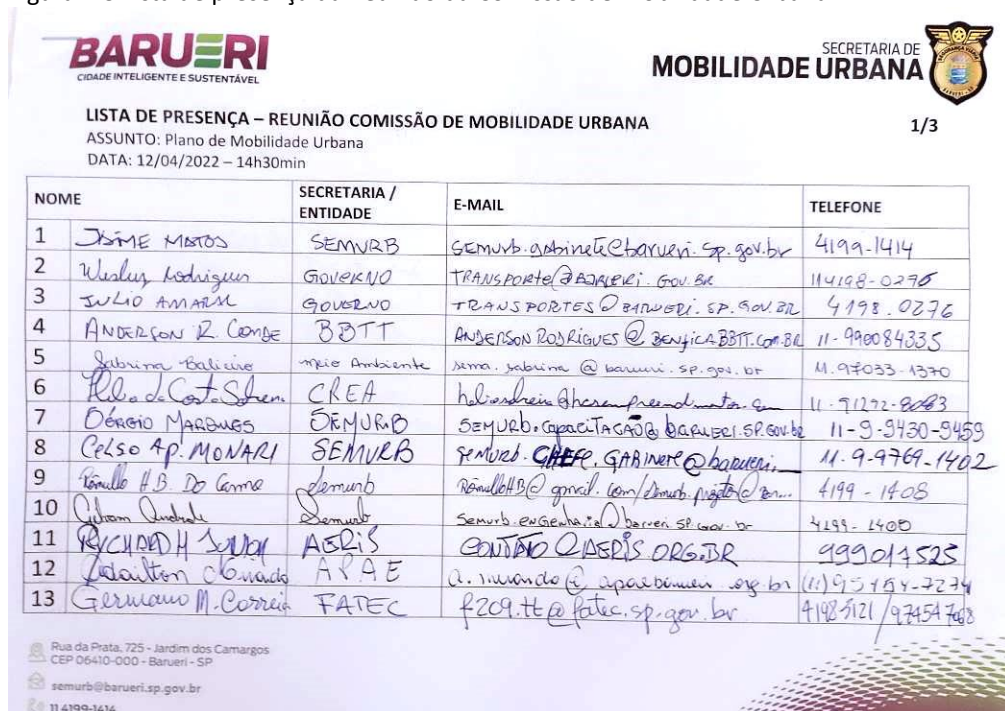 BARUERI
CIDADE INTELIGENTE E SUSTENTÁVEL
SECRETARIA DE
MOBILIDADE URBANA
LISTA DE PRESENÇA – REUNIÃO COMISSÃO DE MOBILIDADE URBANA 1/3
ASSUNTO: Plano de Mobilidade Urbana
DATA: 12/04/2022 – 14h30min
NOME SECRETARIA / ENTIDADE E-MAIL TELEFONE
1 JAIME MATOS SEMURB semurb.gabinete@barueri.sp.gov.br 4199-1414
2 Wesley Rodrigues GOVERNO TRANSPORTE@BARUERI.GOV.BR 114198-0276
3 JULIO AMARAL GOVERNO TRANSPORTES@BARUERI.SP.GOV.BR 4198.0276
4 ANDERSON R. CONDE BBTT ANDERSON RODRIGUES@BENFICABBTT.COM.BR 11-990084335
5 Sabrina meio Ambiente sema.sabrina@barueri.sp.gov.br 11.97033-1370
6 CREA 11-91292-8083
7 SÉRGIO MARQUES SEMURB SEMURB.CAPACITAÇÃO@BARUERI.SP.GOV.br 11-9-9430-9459
8 CELSO AP. MONARI SEMURB SEMURB.CHEFE.GABINETE@barueri. 11.9-9769-1402
9 Rômullo H.B. Do Carmo Semurb RômulloHB@gmail.com/ 4199-1408
10 Andrade Semurb semurb.engenharia@barueri.sp.gov.br 4199-1400
11 RYCHARD H JUNIOR AERIS CONTATO@AERIS.ORG.BR 999017523
12 APAE
13 Germano M. Correia FATEC f209.tt@fatec.sp.gov.br 4198-3121/974547068
Rua da Prata, 725 - Jardim dos Camargos
CEP 06410-000 - Barueri - SP
semurb@barueri.sp.gov.br
11 4199-1414